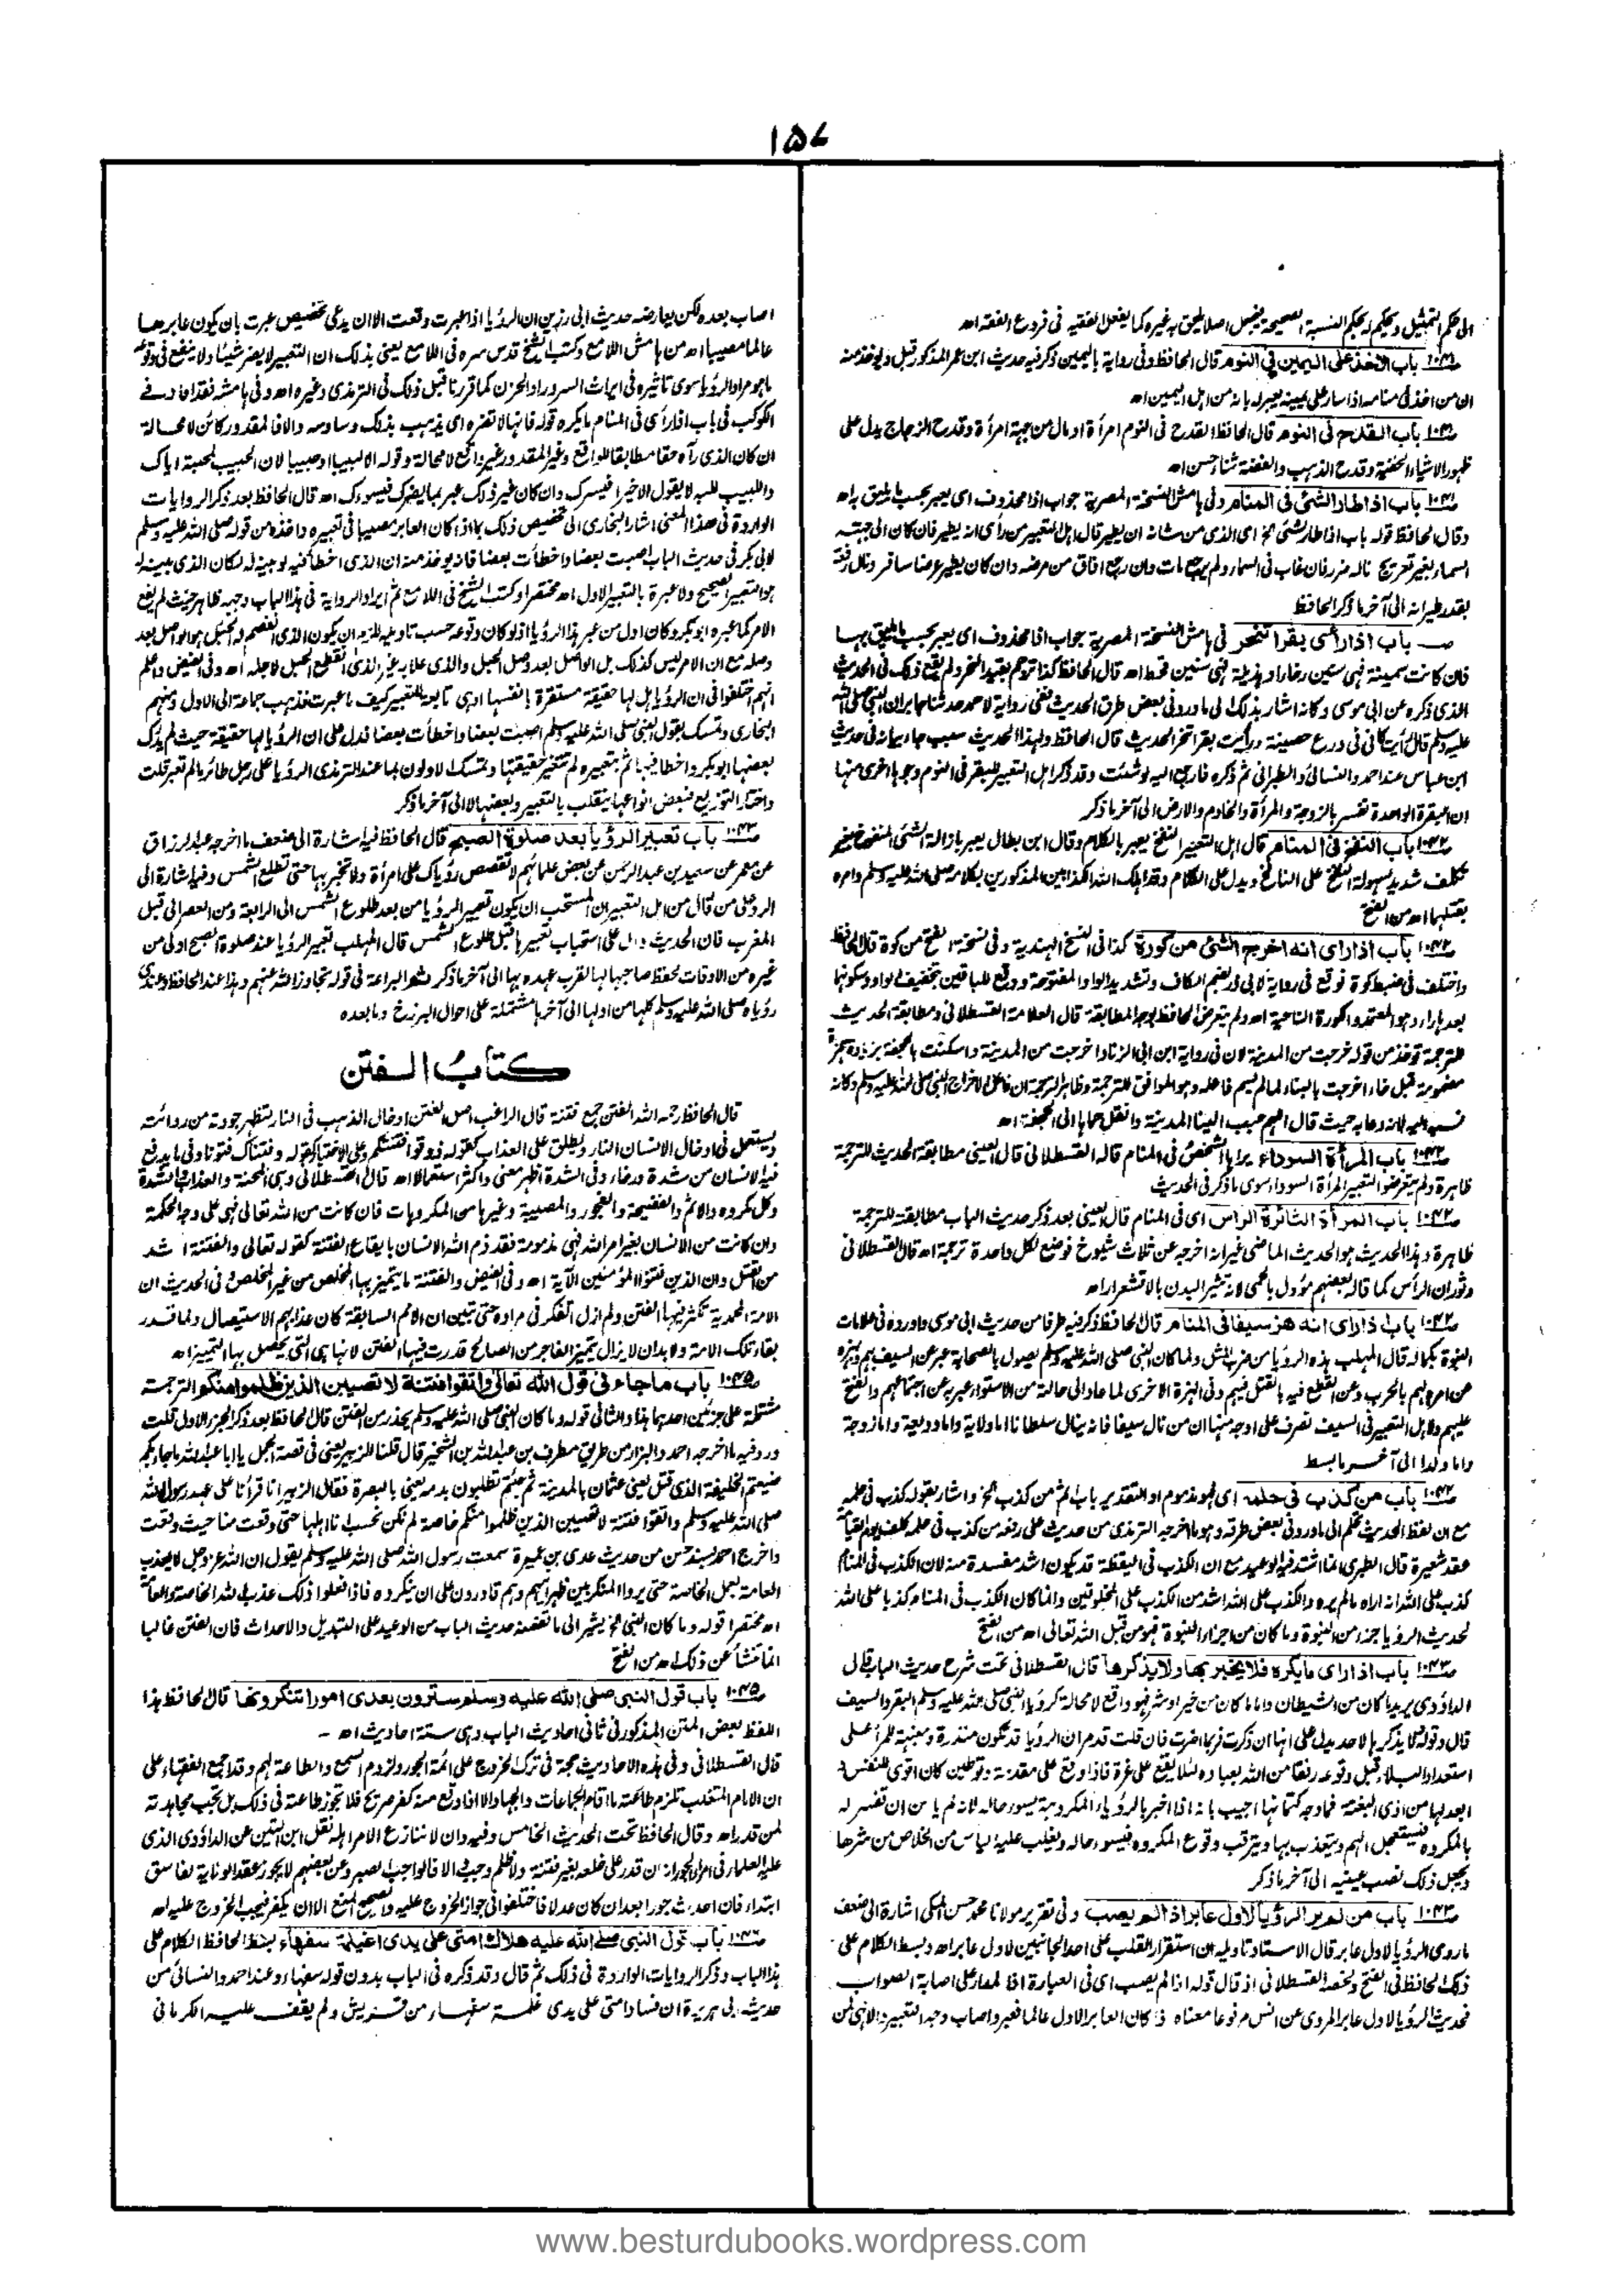 ١٥٧
الى حكم التمثيل ويحكم له بحكم النسبة الصحيحة فيجعل اصلا يلحق به غيره كما يفعل الفقيه فى فروع الفقه اه
باب الاخذ على اليمين فى النوم قال الحافظ وفى رواية باليمين ذكر فيه حديث ابن عمر المذكور قبل ويؤخذ منه
ان من اخذ فى منامه اذا سار على يمينه يعبر له بانه من اهل اليمين اه
باب القدح فى النوم قال الحافظ القدح فى النوم امرأة او مال من جهة امرأة وقدح الزجاج يدل على
ظهور الاشياء الخفية وقدح الذهب والفضة ثناء حسن اه
باب اذا طار الشئ فى المنام وفى هامش النسخة المصرية جواب اذا محذوف اى يعبر بحسب ما يليق به اه
وقال الحافظ قوله باب اذا طار الشئ الخ اى الذى من شانه ان يطير قال اهل التعبير من رأى انه يطير فان كان الى جهة
السماء بغير تعريج ناله ضرر فان غاب فى السماء ولم يرجع مات وان رجع افاق من مرضه وان كان يطير عرضا سافر ونال رفعة
بقدر طيرانه الى آخر ما ذكر الحافظ
باب اذا رأى بقرا تنحر فى هامش النسخة المصرية جواب اذا محذوف اى يعبر بحسب ما يليق بها
فان كانت سمينة فهى سنين رخاء او هذيلة فهى سنين قحط اه قال الحافظ كذا ترجم بقيد النحر ولم يقع ذلك فى الحديث
الذى ذكره عن ابى موسى وكانه اشار بذلك الى ما ورد فى بعض طرق الحديث ففى رواية لاحمد حدثنا جابر ان النبى صلى الله
عليه وسلم قال رأيت كانى فى درع حصينة ورأيت بقرا تنحر الحديث قال الحافظ ولهذا الحديث سبب جاء بيانه فى حديث
ابن عباس عند احمد والنسائى والطبرانى ثم ذكره فارجع اليه لو شئت وقد ذكر اهل التعبير للبقر فى النوم وجوها اخرى منها
ان البقرة الواحدة تفسر بالزوجة والمرأة والخادم والارض الى آخر ما ذكر
باب النفخ فى المنام قال اهل التعبير النفخ يعبر بالكلام وقال ابن بطال يعبر بازالة الشئ المنفوخ بغير
تكلف شديد لسهولة النفخ على النافخ ويدل على الكلام وقد اهلك الله الكذابين المذكورين بكلامه صلى الله عليه وسلم وامره
بقتلهما اه من الفتح
باب اذا رأى انه اخرج الشئ من كورة كذا فى النسخ الهندية وفى نسخة الفتح من كوة قال الحافظ
واختلف فى ضبط كوة فوقع فى رواية لابى ذر بضم الكاف وتشديد الواو المفتوحة ووقع للباقين بتخفيف الواو وسكونها
بعد ها راء وهو المعتمد والكورة الناحية اه ولم يتعرض الحافظ لوجه المطابقة قال العلامة القسطلانى ومطابقة الحديث
للترجمة تؤخذ من قوله خرجت من المدينة لان فى رواية ابن ابى الزناد اخرجت من المدينة واسكنت بالجحفة بزيادة همزة
مضمومة قبل خاء اخرجت بالبناء لما لم يسم فاعله وهو الموافق للترجمة وظاهر الترجمة ان فاعل الاخراج النبى صلى الله عليه وسلم وكانه
نسبه اليه لانه دعا به حيث قال اللهم حبب الينا المدينة وانقل حماها الى الجحفة اه
باب المرأة السوداء يراها الشخص فى المنام قاله القسطلانى قال العينى مطابقة الحديث للترجمة
ظاهرة ولم يتعرضوا لتعبير المرأة السوداء سوى ما ذكر فى الحديث
باب المرأة الثائرة الرأس اى فى المنام قال العينى بعد ذكر حديث الباب مطابقته للترجمة
ظاهرة وهذا الحديث هو الحديث الماضى غير انه اخرجه عن ثلاث شيوخ فوضع لكل واحدة ترجمة اه قال القسطلانى
وثوران الرأس كما قاله بعضهم مؤول بالحمى لانه تثير البدن بالاقشعرار اه
باب اذا رأى انه هز سيفا فى المنام قال الحافظ ذكر فيه طرفا من حديث ابى موسى واورده فى علامات
النبوة بكماله قال المهلب هذه الرؤيا من ضرب المثل ولما كان النبى صلى الله عليه وسلم يصول بالصحابة عبر عن السيف بهم وبهزه
عن امره لهم بالحرب وعن القطع فيه بالقتل فيهم وفى الهزة الاخرى لما عاد الى حالته من الاستواء عبر به عن اجتماعهم والفتح
عليهم ولاهل التعبير فى السيف تصرف على اوجه منها ان من نال سيفا فانه ينال سلطانا اما ولاية واما وديعة واما زوجة
واما ولدا الى آخر ما بسط
باب من كذب فى حلمه اى فهو مذموم او التقدير باب اثم من كذب الخ واشار بقوله كذب فى حلمه
مع ان لفظ الحديث تحلم الى ما ورد فى بعض طرقه وهو ما اخرجه الترمذى من حديث على رفعه من كذب فى حلمه كلف يوم القيامة
عقد شعيرة قال الطبرى انما اشتد فيه الوعيد مع ان الكذب فى اليقظة قد يكون اشد مفسدة منه لان الكذب فى المنام
كذب على الله انه اراه ما لم يره والكذب على الله اشد من الكذب على المخلوقين وانما كان الكذب فى المنام كذبا على الله
لحديث الرؤيا جزء من النبوة وما كان من اجزاء النبوة فهو من قبل الله تعالى اه من الفتح
باب اذا رأى ما يكره فلا يخبر بها ولا يذكرها قال القسطلانى تحت شرح حديث الباب قال
الداؤدى يريد ما كان من الشيطان واما ما كان من خير او شر فهو واقع لا محالة كرؤيا النبى صلى الله عليه وسلم البقر والسيف
قال وقوله فلا يذكرها لاحد يدل على انها ان ذكرت فربما اضرت فان قلت قد مر ان الرؤيا قد تكون منذرة ومنبهة للمرأ على
استعداد البلاء قبل وقوعه رفقا من الله بعباده لئلا يقع على غرة فاذا وقع على مقدمة وتوطين كان اقوى للنفس و
ابعد لها من اذى البغتة فما وجه كتمانها اجيب بانه اذا اخبر بالرؤياء المكروهة يسوء حاله لانه لم يامن ان تفسر له
بالمكروه فيستعجل الهم ويتعذب بها ويترقب وقوع المكروه فيسوء حاله ويغلب عليه اليأس من الخلاص من شرها
ويجعل ذلك نصب عينيه الى آخر ما ذكر
باب من لم ير الرؤيا لاول عابر اذا لم يصب وفى تقرير مولانا محمد حسن المكى اشارة الى ضعف
ما روى الرؤيا لاول عابر قال الاستاد تاويله ان استقرار القلب على احد الجانبين لاول عابر اه وبسط الكلام على
ذلك الحافظ فى الفتح ولخصه القسطلانى اذ قال قوله اذا لم يصب اى فى العبارة اذ المدار على اصابة الصواب
فحديث الرؤيا لاول عابر المروى عن انس مرفوعا معناه اذا كان العابر الاول عالما فعبر واصاب وجه التعبير والا فهى لمن
اصاب بعده لكن يعارضه حديث ابى رزين ان الرؤيا اذا عبرت وقعت الا ان يدعى تخصيص عبرت بان يكون عابرها
عالما مصيبا اه من هامش اللامع وكتب الشيخ قدس سره فى اللامع يعنى بذلك ان التعبير لا يضر شيئا ولا ينفع فى وقوع
ما هو مراد الرؤيا سوى تاثيره فى ايراث السرور او الحزن كما قررنا قبل ذلك فى الترمذى وغيره اه وفى هامشه فقد افاد فى
الكوكب فى باب اذا رأى فى المنام ما يكره قوله فانها لا تضره اى يذهب بذلك وساوسه والا فالمقدور كائن لا محالة
ان كان الذى رآه حقا مطابقا للواقع وغير المقدور غير واقع لا محالة وقوله الا لبيبا او حبيبا لان الحبيب لمحبته اياك
واللبيب للبه لا يقول الا خيرا فيسرك وان كان غير ذلك عبر بما يضرك فيسوءك اه قال الحافظ بعد ذكر الروايات
الواردة فى هذا المعنى اشار البخارى الى تخصيص ذلك بما اذا كان العابر مصيبا فى تعبيره واخذه من قوله صلى الله عليه وسلم
لابى بكر فى حديث الباب اصبت بعضا واخطأت بعضا فانه يؤخذ منه ان الذى اخطأ فيه لو بينه له لكان الذى بينه له
هو التعبير الصحيح ولا عبرة بالتعبير الاول اه مختصرا وكتب الشيخ فى اللامع ثم ايراد الرواية فى هذا الباب وجهه ظاهر حيث لم يقع
الامر كما عبره ابو بكر وكان اول من عبر هذا الرؤيا اذ لو كان وقوعه حسب تاويله للزم ان يكون الذى انفصم له الحبل هو الواصل بعد
وصله مع ان الامر ليس كذلك بل الواصل بعد وصل الحبل والذى علا به غير الذى انقطع الحبل لاجله اه وفى الفيض واعلم
انهم اختلفوا فى ان الرؤيا هل لها حقيقة مستقرة بانفسها او هى تابعة للتعبير كيف ما عبرت فذهب جماعة الى الاول ومنهم
البخارى وتمسك بقول النبى صلى الله عليه وسلم اصبت بعضا واخطأت بعضا فدل على ان الرؤيا لها حقيقة حيث لم يدرك
بعضها ابو بكر واخطا فيها ثم بتعبيره لم تتغير حقيقتها وتمسك الاولون بما عند الترمذى الرؤيا على رجل طائر ما لم تعبر قلت
واختار التوزيع فبعض انواعها ينقلب بالتعبير وبعضها لا الى آخر ما ذكر
باب تعبير الرؤيا بعد صلوة الصبح قال الحافظ فيه اشارة الى ضعف ما اخرجه عبد الرزاق
عن معمر عن سعيد بن عبد الرحمن عن بعض علمائهم لا تقصص رؤياك على امرأة ولا تخبر بها حتى تطلع الشمس وفيه اشارة الى
الرد على من قال من اهل التعبير ان المستحب ان يكون تعبير الرؤيا من بعد طلوع الشمس الى الرابعة ومن العصر الى قبل
المغرب فان الحديث دال على استحباب تعبيرها قبل طلوع الشمس قال المهلب تعبير الرؤيا عند صلوة الصبح اولى من
غيره من الاوقات لحفظ صاحبها لها لقرب عهده بها الى آخر ما ذكر ثم البراعة فى قوله تجاوز الله عنهم وهذا عند الحافظ وعندى
رؤياه صلى الله عليه وسلم كلها من اولها الى آخرها مشتملة على احوال البرزخ وما بعده
كتابُ الفتن
قال الحافظ رحمه الله الفتن جمع فتنة قال الراغب اصل الفتن ادخال الذهب فى النار لتظهر جودته من ردائته
ويستعمل فى ادخال الانسان النار ويطلق على العذاب كقوله ذوقوا فتنتكم وعلى الاختبار كقوله وفتناك فتونا وفى ما يدفع
فيه الانسان من شدة ورخاء وفى الشدة اظهر معنى واكثر استعمالا اه قال القسطلانى وهى المحنة والعذاب والشدة
وكل مكروه والاثم والفضيحة والفجور والمصيبة وغيرها من المكروهات فان كانت من الله تعالى فهى على وجه الحكمة
وان كانت من الانسان بغير امر الله فهى مذمومة فقد ذم الله الانسان بايقاع الفتنة كقوله تعالى والفتنة اشد
من القتل وان الذين فتنوا المؤمنين الآية اه وفى الفيض والفتنة ما يتميز بها المخلص من غير المخلص وفى الحديث ان
الامة المحمدية تكثر فيها الفتن ولم ازل اتفكر فى مراده حتى تبين ان الامم السابقة كان عذابهم الاستيصال ولما قدر
بقاء تلك الامة ولا بد ان لا يزال يتميز الفاجر من الصالح قدرت فيها الفتن لانها هى التى يحصل بها التمييز اه
باب ما جاء فى قول الله تعالى واتقوا فتنة لا تصيبن الذين ظلموا منكم الترجمة
مشتملة على جزئين احدهما هذا والثانى قوله وما كان النبى صلى الله عليه وسلم يحذر من الفتن قال الحافظ بعد ذكر الجزء الاول قلت
ورد فيه ما اخرجه احمد والبزار من طريق مطرف بن عبد الله بن الشخير قال قلنا للزبير يعنى فى قصة الجمل يا ابا عبد الله ما جاء بكم
ضيعتم الخليفة الذى قتل يعنى عثمان بالمدينة ثم جئتم تطلبون بدمه يعنى بالبصرة فقال الزبير انا قرأنا على عهد رسول الله
صلى الله عليه وسلم واتقوا فتنة لا تصيبن الذين ظلموا منكم خاصة لم نكن نحسب انا اهلها حتى وقعت منا حيث وقعت
واخرج احمد بسند حسن من حديث عدى بن عميرة سمعت رسول الله صلى الله عليه وسلم يقول ان الله عز وجل لا يعذب
العامة بعمل الخاصة حتى يروا المنكر بين ظهرانيهم وهم قادرون على ان ينكروه فاذا فعلوا ذلك عذب الله الخاصة والعامة
اه مختصرا قوله وما كان النبى الخ يشير الى ما تضمنه حديث الباب من الوعيد على التبديل والاحداث فان الفتن غالبا
انما تنشأ عن ذلك اه من الفتح
باب قول النبى صلى الله عليه وسلم سترون بعدى امورا تنكرونها قال الحافظ هذا
اللفظ بعض المتن المذكور فى ثانى احاديث الباب وهى ستة احاديث اه
قال القسطلانى وفى هذه الاحاديث حجة فى ترك الخروج على ائمة الجور ولزوم السمع والطاعة لهم وقد اجمع الفقهاء على
ان الامام المتغلب تلزم طاعته ما اقام الجماعات والجهاد الا اذا وقع منه كفر صريح فلا تجوز طاعته فى ذلك بل تجب مجاهدته
لمن قدر اه وقال الحافظ تحت الحديث الخامس وفيه وان لا ننازع الامر اهله نقل ابن التين عن الداؤدى الذى
عليه العلماء فى امراء الجور انه ان قدر على خلعه بغير فتنة ولا ظلم وجب والا فالواجب الصبر وعن بعضهم لا يجوز عقد الولاية لفاسق
ابتداء فان احدث جورا بعد ان كان عدلا فاختلفوا فى جواز الخروج عليه والصحيح المنع الا ان يكفر فيجب الخروج عليه اه
باب قول النبى صلى الله عليه هلاك امتى على يدى اغيلمة سفهاء بسط الحافظ الكلام على
هذا الباب وذكر الروايات الواردة فى ذلك ثم قال وقد ذكره فى الباب بدون قوله سفهاء وعند احمد والنسائى من
حديث ابى هريرة ان فساد امتى على يدى غلمة سفهاء من قريش ولم يقف عليه الكرمانى
www.besturdubooks.wordpress.com